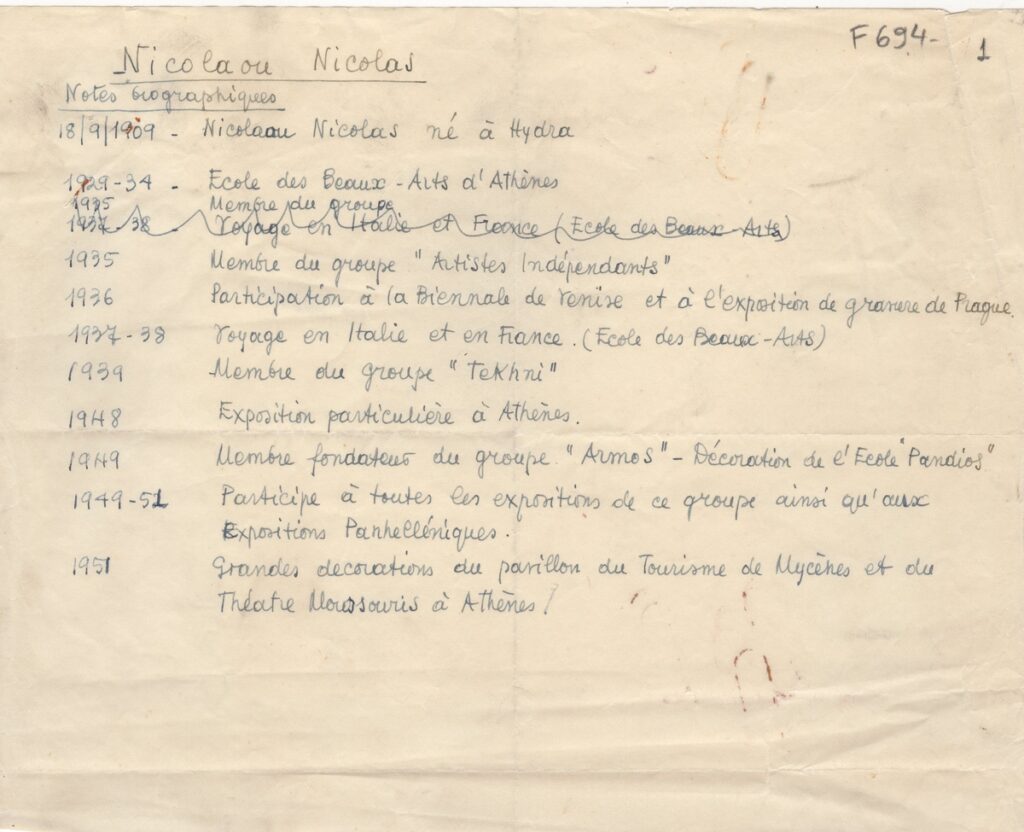 F 694- 1
Nicolaou Nicolas
Notes biographiques
18/9/1909 - Nicolaou Nicolas né à Hydra
1929-34 - Ecole des Beaux-Arts d'Athènes
1935 Membre du groupe
1937-38 - Voyage en Italie et France (Ecole des Beaux-Arts)
1935 Membre du groupe "Artistes Indépendants"
1936 Participation à la Biennale de Venise et à l'exposition de gravure de Prague.
1937-38 Voyage en Italie et en France. (Ecole des Beaux-Arts)
1939 Membre du groupe "Tekhni"
1948 Exposition particulière à Athènes.
1949 Membre fondateur du groupe "Armos" - Décoration de l'Ecole "Pandios"
1949-51 Participe à toutes les expositions de ce groupe ainsi qu'aux
Expositions Panhelléniques.
1951 Grandes decorations du pavillon du Tourisme de Mycènes et du
Théatre Moussouris à Athènes!